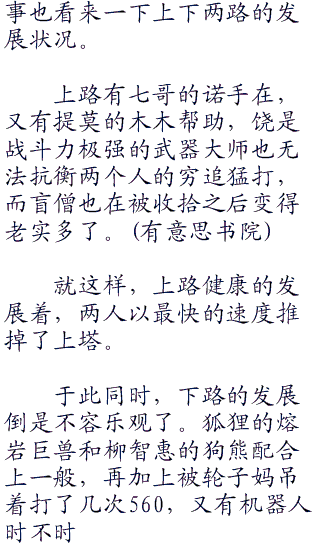 事也看来一下上下两路的发
展状况。
上路有七哥的诺手在，
又有提莫的木木帮助，饶是
战斗力极强的武器大师也无
法抗衡两个人的穷追猛打，
而盲僧也在被收拾之后变得
老实多了。(有意思书院)
就这样，上路健康的发
展着，两人以最快的速度推
掉了上塔。
于此同时，下路的发展
倒是不容乐观了。狐狸的熔
岩巨兽和柳智惠的狗熊配合
上一般，再加上被轮子妈吊
着打了几次560，又有机器人
时不时